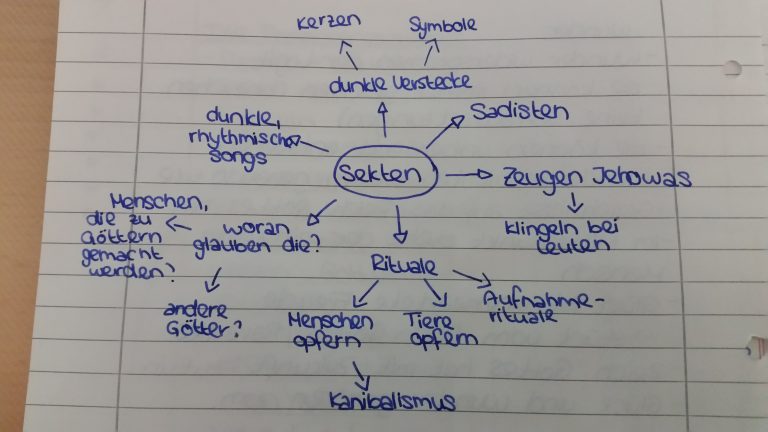 Kerzen
Symbole
dunkle Verstecke
dunkle,
rhythmische
songs
Sadisten
Sekten
Zeugen Jehowas
klingeln bei
Leuten
Menschen,
die zu
Göttern
gemacht
werden?
woran
glauben die?
andere
Götter?
Rituale
Menschen
opfern
Tiere
opfern
Aufnahme-
rituale
Kanibalismus